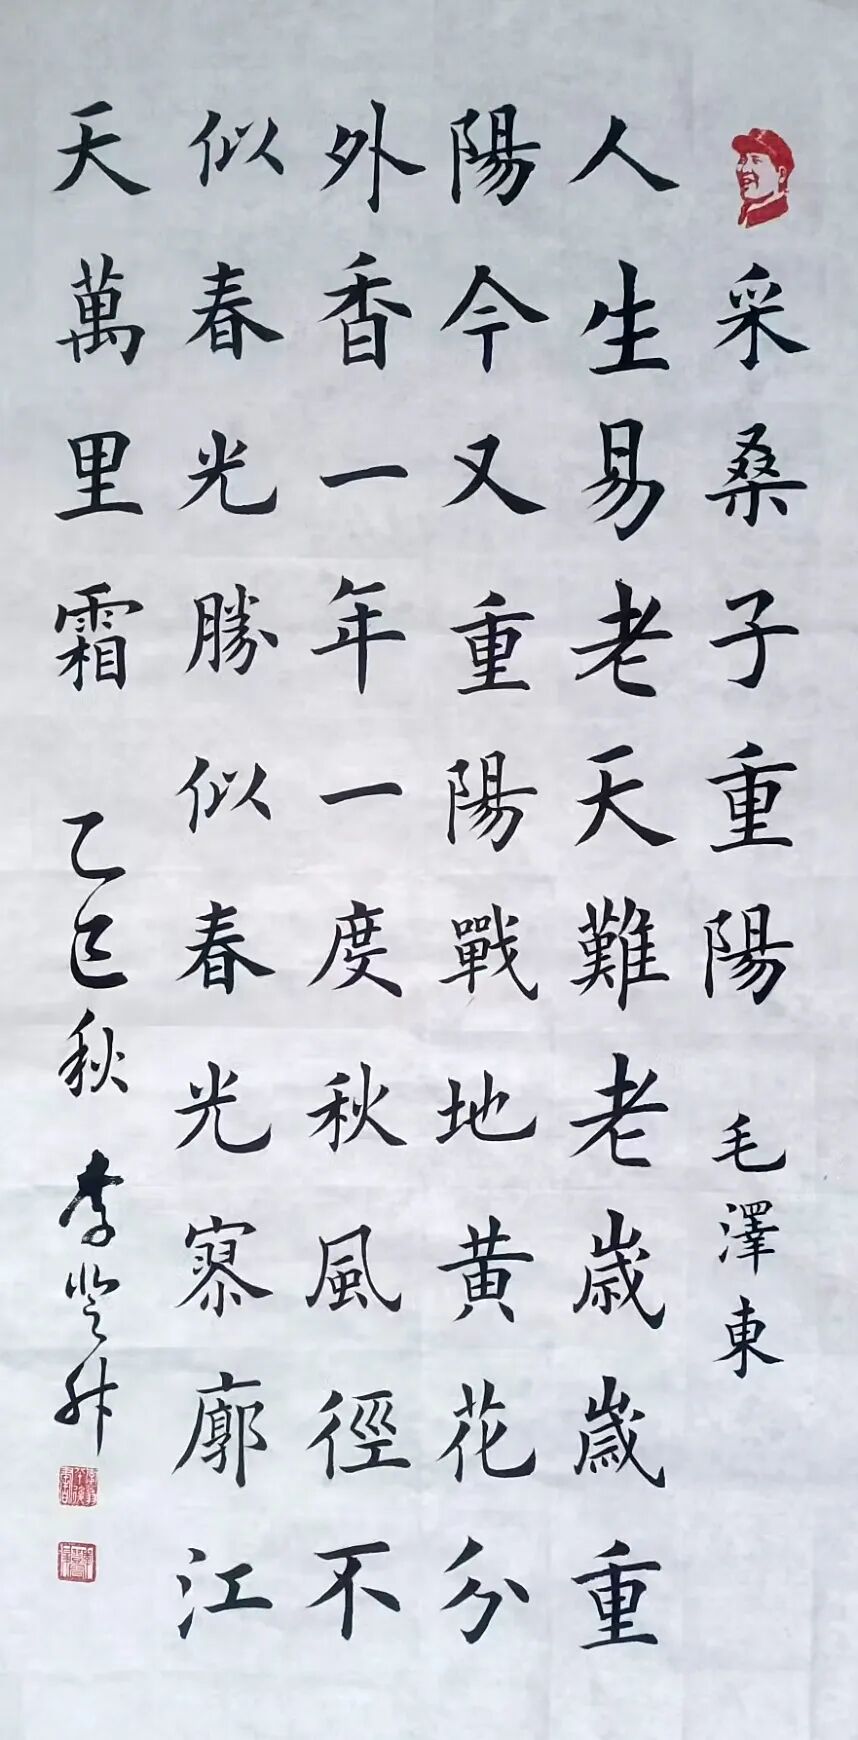 采桑子重陽 毛澤東
人生易老天難老歲歲重
陽今又重陽戰地黄花分
外香一年一度秋風徑不
似春光勝似春光寥廓江
天萬里霜 乙巳秋 李